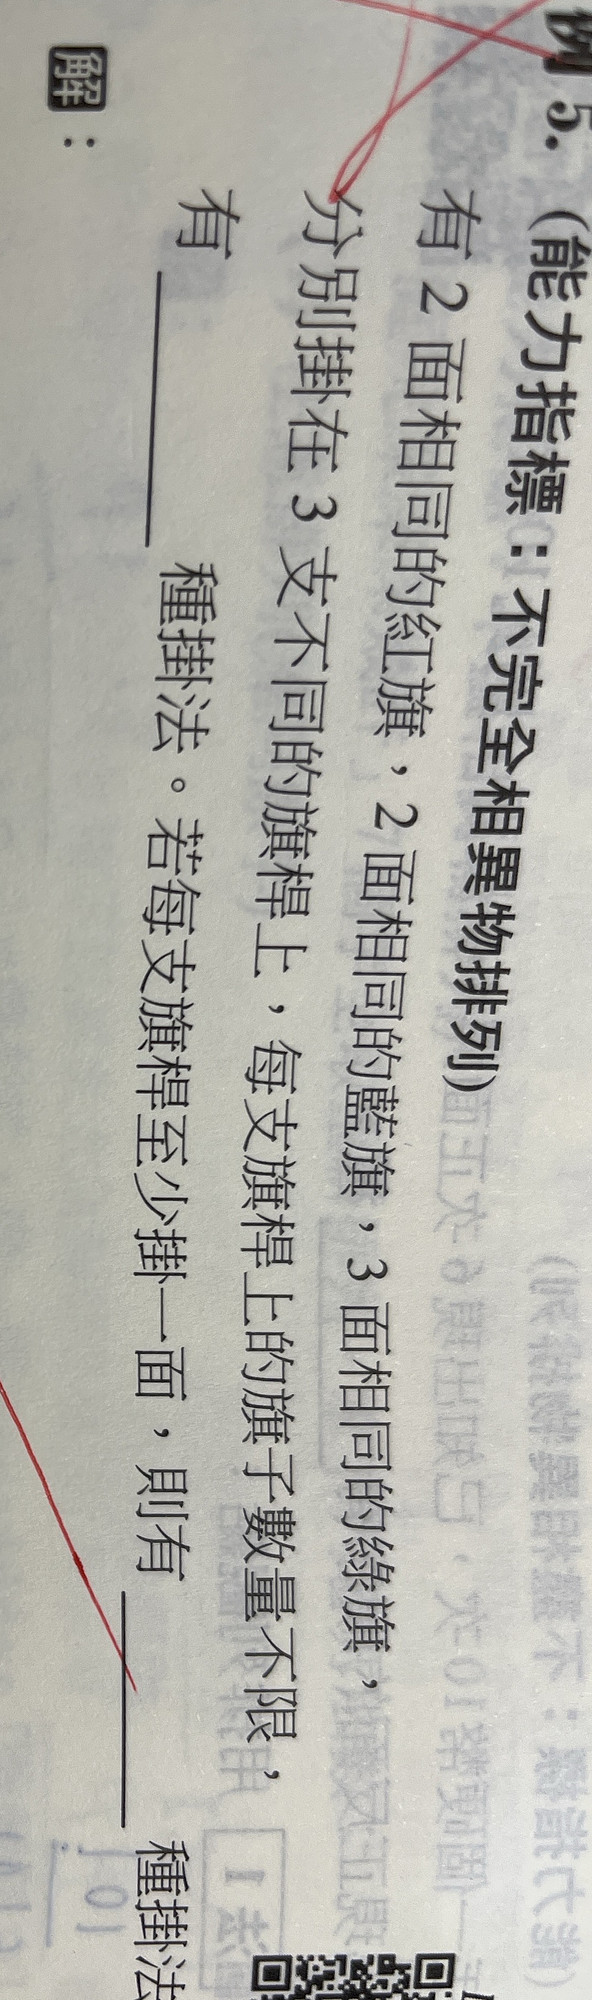 例 5. (能力指標：不完全相異物排列)
有 2 面相同的紅旗，2 面相同的藍旗，3 面相同的綠旗，
分別掛在 3 支不同的旗桿上，每支旗桿上的旗子數量不限，
有 ________ 種掛法。若每支旗桿至少掛一面，則有 ________ 種掛法
解：